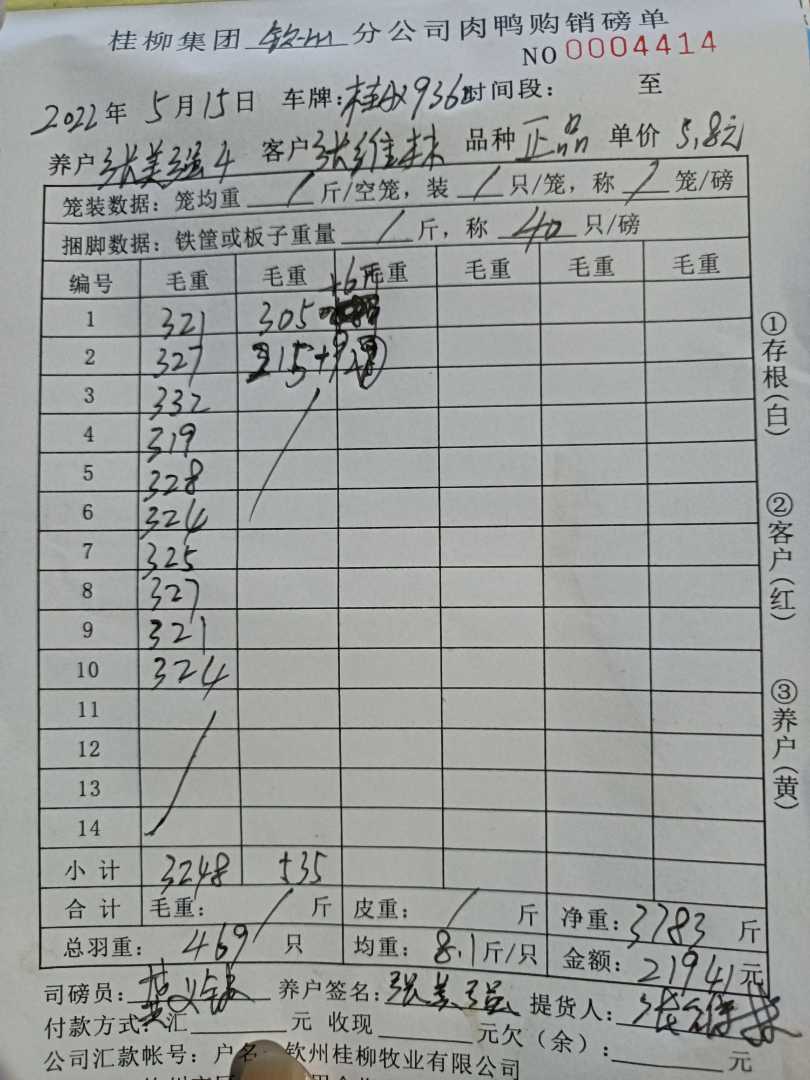 桂柳集团 钦州 分公司肉鸭购销磅单
NO 0004414
2022年 5月15日 车牌: 时间段: 至
养户 张美强4 客户 张维林 品种 正品 单价 5.8元
笼装数据: 笼均重 / 斤/空笼, 装 / 只/笼, 称 / 笼/磅
捆脚数据: 铁筐或板子重量 / 斤, 称 40 只/磅
编号 毛重 毛重 毛重 毛重 毛重 毛重
1 321 305
2 327 215+
3 332
4 319
5 328
6 324
7 325
8 327
9 321
10 324
11
12
13
14
小计 3248 535
合计 毛重: / 斤 皮重: / 斤 净重: 3783 斤
总羽重: 469 只 均重: 8.1 斤/只 金额: 21941元
司磅员: 养户签名: 张美强 提货人:
付款方式: 汇 元 收现 元欠(余): 元
公司汇款帐号: 户名 钦州桂柳牧业有限公司
①存根(白)
②客户(红)
③养户(黄)